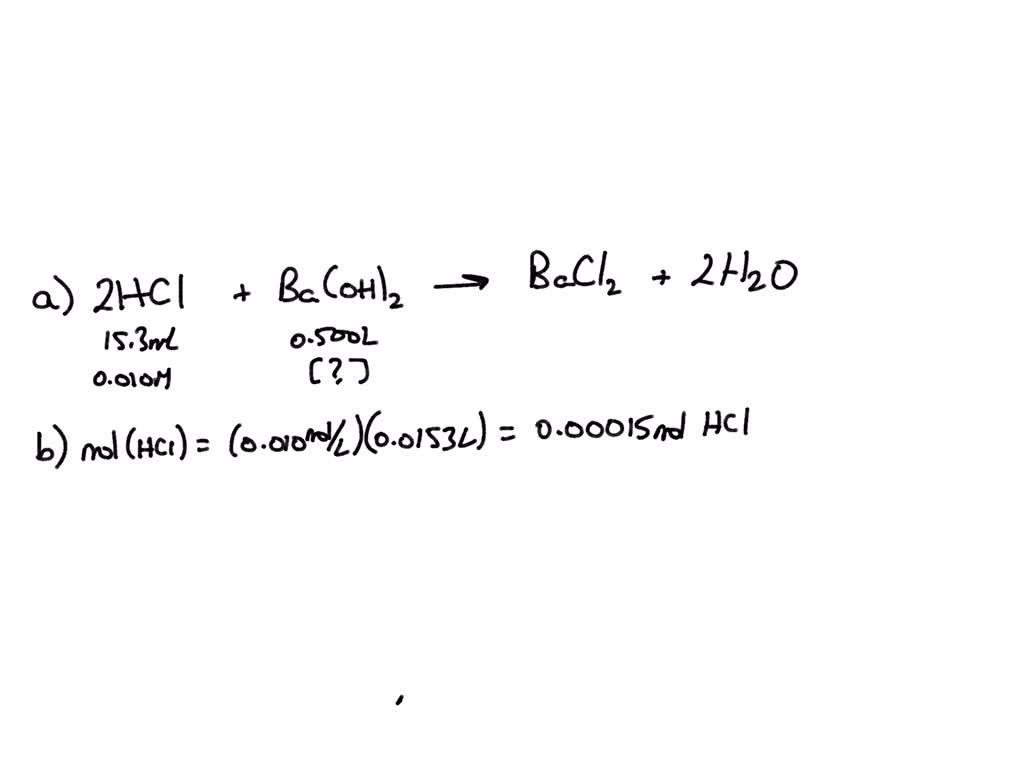 a) 2HCl + Ba(OH)₂ → BaCl₂ + 2H₂O
15.3mL 0.500L
0.010M [?]
b) mol (HCl) = (0.010 mol/L)(0.0153L) = 0.00015mol HCl